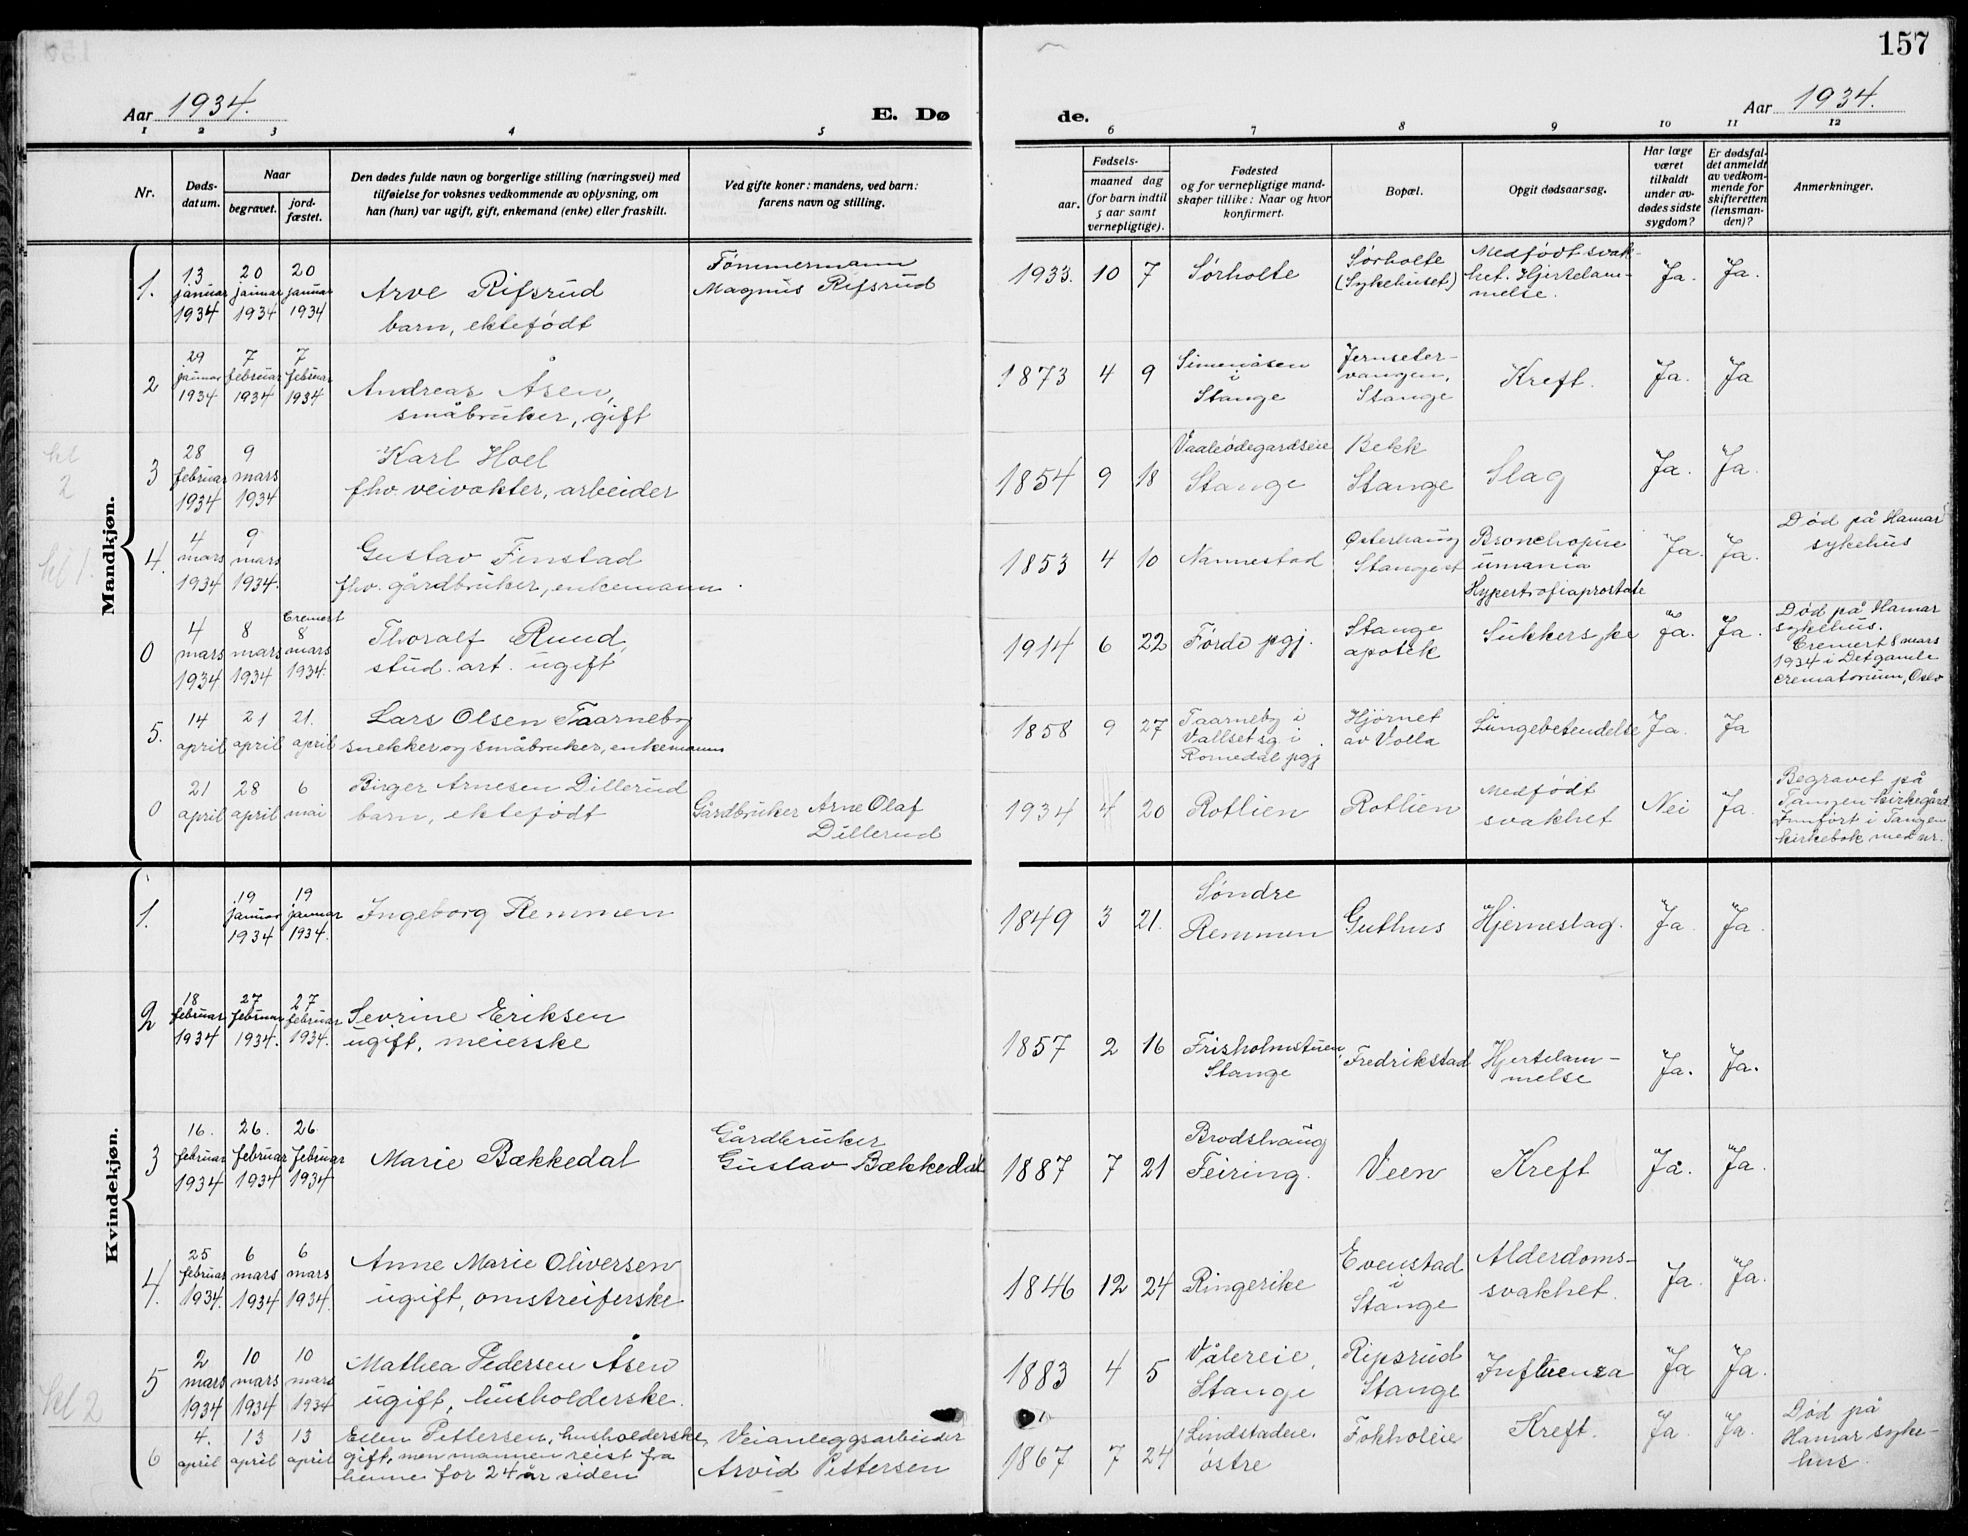 157
Aar 1934.
E. Dø
de.
Aar 1934.
1 2 3 4 5 6 7 8 9 10 11 12
Nr.
Døds-
datum.
Naar
begravet.
jord-
fæstet.
Den dødes fulde navn og borgerlige stilling (næringsvei) med
tilføielse for voksnes vedkommende av oplysning, om
han (hun) var ugift, gift, enkemand (enke) eller fraskilt.
Ved gifte koner: mandens, ved barn:
farens navn og stilling.
Fødsels-
aar.
maaned dag
(for barn indtil
5 aar samt
vernepligtige).
Fødested
og for vernepligtige mand-
skaper tillike: Naar og hvor
konfirmert.
Bopæl.
Opgit dødsaarsag.
Har læge
været
tilkaldt
under av-
dødes sidste
sygdom?
Er dødsfal-
det anmeldt
av vedkom-
mende for
skifteretten
(lensman-
den)?
Anmerkninger.
Mandkjøn.
1.
13 januar 1934
20 januar 1934
20 januar 1934
Arve Rifsrud
barn, ektefødt
Tømmermann
Magnus Rifsrud
1933. 10 7
Sørholte
Sørholte
(Sykehuset)
Medfødt svak-
het. Hjertelam-
melse.
Ja. Ja.
2
29 januar 1934
7 februar 1934
7 februar 1934
Andreas Åsen,
småbruker, gift
1873 4 9
Simenåsen
i
Stange
Jernseter-
vangen,
Stange
Kreft.
Ja. Ja
kl
2
3
28 februar 1934
9 mars 1934
Karl Hoel
fhv. veivokter, arbeider
1854 9 18
Vaaleødegardseie
Stange
Bekk
Stange
Slag
Ja. Ja.
kl 1.
4.
4 mars 1934
9 mars 1934.
Gustav Finstad
fhv. gårdbruker, enkemann.
1853 4 10
Nannestad
Østerhaug
Stange
Bronchopne
umania
Hypertrofiaprostate
Ja. Ja.
Død på Hamar
sykehus
0
4 mars 1934
8 mars 1934
Cremert 8 mars 1934.
Thoralf Ruud,
stud. art. ugift
1914 6 22
Førde pgj.
Stange
apotek
Sukkersyke
Ja. Ja.
Død på Hamar
sykehus.
Cremert 8 mars
1934 i Det gamle
crematorium, Oslo
5.
14 april
21 april
21. april
Lars Olsen Taarneby
snekker og småbruker, enkemann
1858 9 27
Taarneby i
Vallset sg. i
Romedal pgj.
Hjørnet
av Volla
Lungebetendelse
Ja. Ja
0
21 april
28 april
6 mai
Birger Arnesen Dillerud
barn, ektefødt
Gårdbruker Arne Olaf
Dillerud
1934 4 20
Rotlien
Rotlien
Medfødt
svakhet
Nei Ja.
Begravet på
Tangen kirkegård.
Innført i Tangen
kirkebok med nr.
Kvindekjøn.
1.
19 januar 1934
19 januar 1934.
Ingeborg Remmen
1849 3 21.
Søndre
Remmen
Guthus
Hjerneslag.
Ja. Ja.
2
18 februar 1934
27 februar 1934.
27 februar 1934.
Sevrine Eriksen
ugift, meierske
1857 2 16
Frisholmstuen,
Stange
Fredrikstad
Hjertelam-
melse
Ja. Ja.
3
16. februar 1934
26. februar 1934
26 februar 1934
Marie Bækkedal
Gårdbruker
Gustav Bækkedal
1887 7 21
Brodshaug
Feiring.
Veen
Kreft
Ja. Ja.
4.
25 februar 1934.
6 mars 1934
6 mars 1934.
Anne Marie Oliversen
ugift, omstreiferske
1846 12 24
Ringerike
Evenstad
i
Stange
Alderdoms-
svakhet.
Ja. Ja.
5
2 mars 1934
10 mars 1934
10 mars 1934
Mathea Pedersen Åsen
ugift, husholderske.
1883 4 5
Vålereie,
Stange
Ripsrud
Stange
Influenza
Ja Ja.
kl 2
6
4. april
13 april
13 april
Ellen Pettersen, husholderske,
gift, men mannen reist fra
henne for 24 år siden
Veianleggsarbeider
Arvid Pettersen
1867 7 24
Lindstadeie.
østre
Fokholeie
Kreft.
Ja. Ja.
Død på
Hamar syke-
hus.